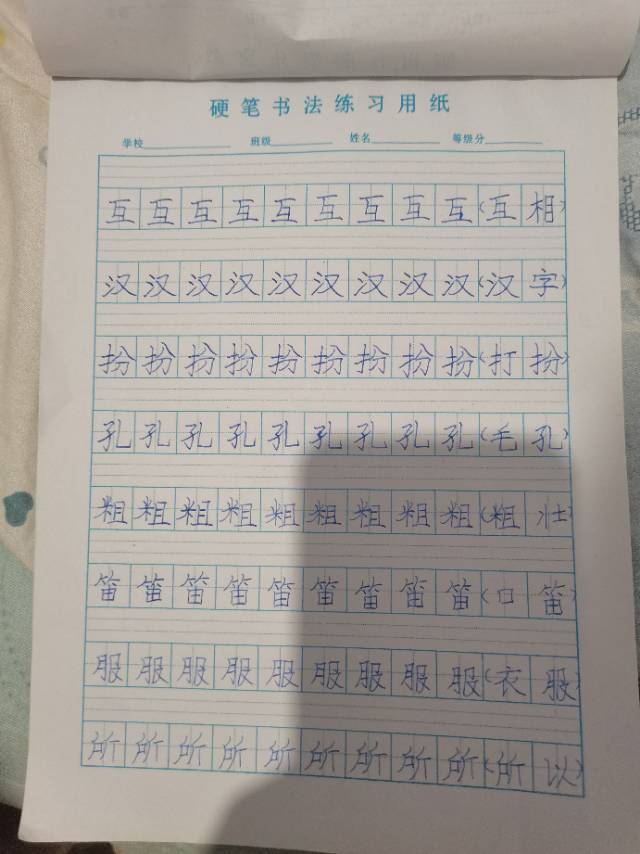 硬笔书法练习用纸
学校 班级 姓名 等级分
互互互互互互互互互(互相)
汉汉汉汉汉汉汉汉汉(汉字)
扮扮扮扮扮扮扮扮扮(打扮)
孔孔孔孔孔孔孔孔孔(毛孔)
粗粗粗粗粗粗粗粗粗(粗壮)
笛笛笛笛笛笛笛笛笛(口笛)
服服服服服服服服服(衣服)
所所所所所所所所所(所以)